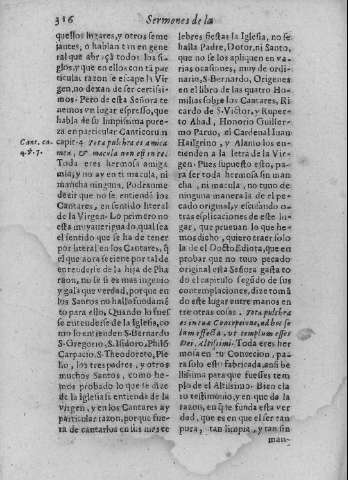 316 Sermones de la
quellos lugares, y otros seme
jantes, o hablan tan en gene
ral que abraçã todos los si
glos, y que en ellos con tã par
ticular razon se escape la Vir
gen, no dexan de ser certissi
mos. Pero de esta Señora te
nemos vn lugar expresso, que
habla de su limpissima pure-
za en particular Canticorũ n
Cant. ca. capit. 4 Tota pulchra es amica
4. v. 7. mea, & macula non est in te.
Toda eres hermosa amiga
mia, y no ay en ti macula, ni
mancha ninguna. Podranme
dezir que no se entiendẽ los
Cantares, en sentido literal
de la Virgen. Lo primero no
esta muy aueriguado, qual sea
el sentido que se ha de tener
por literal en los Cantares, ꝗ̃
el que aora se tiene por tal de
entenderse de la hija de Pha
raon, no se si es mas ingenio
y gala que verdad, porque en
los Santos no hallo fundamẽ
to para ello, Quando lo fuesse
se entenderse de la Iglesia, co
mo lo entienden S. Bernardo
S. Gregorio, S. Isidoro, Philõ
Carpacio, S. Theodoreto, Pse
lio, los tres padres, y otros
muchos Santos, como he-
mos probado lo que se dize
de la Iglesia se entienda de la
Virgen, y en los Cantares ay
particular razon, porque fue-
ra de cantarlos en sus mas ce
lebres fiestas la Iglesia, no se
halla Padre, Dotor, ni Santo,
que no se los apliquen en va-
rias ocasiones, muy de ordi-
nario, S. Bernardo, Origenes
en el libro de las quatro Ho-
milias sobre los Cantares, Ri
cardo de S. Victor, y Ruper-
to Abad, Honorio Guillermo
Paruo, el Cardenal Iuan
Hailgrino, y Alano los enten-
dieron a la letra de la Vir-
gen. Pues supuesto esto, pa-
ra ser toda hermosa sin man
cha, ni macula, no tuuo de
ninguna manera la de el pe-
cado original, y escusando o-
tras esplicaciones de este lu-
gar, que prueuan lo que he-
mos dicho, quiero traer solo
la de el Docto Ediota, que en
probar que no tuuo pecado
original esta Señora gasta to
do el capitulo segũdo de sus
contemplaciones, dize tomã
do este lugar entre manos en
tre otras cosas. Tota pulchra
es in tua Conceptione, ad hoc so
lum effecta, vt templum esses
Dei. Altissimi. Toda eres her
mosa en tu Concecion, pa-
ra solo esto fabricada, ansi be
llissima para que fuesses tem-
plo de el Altissimo. Bien cla
ro testimonio, y en que da la
razon, en que funda esta ver
dad, que es en que el ser tan
pura, tan limpia, y tan sin
man-